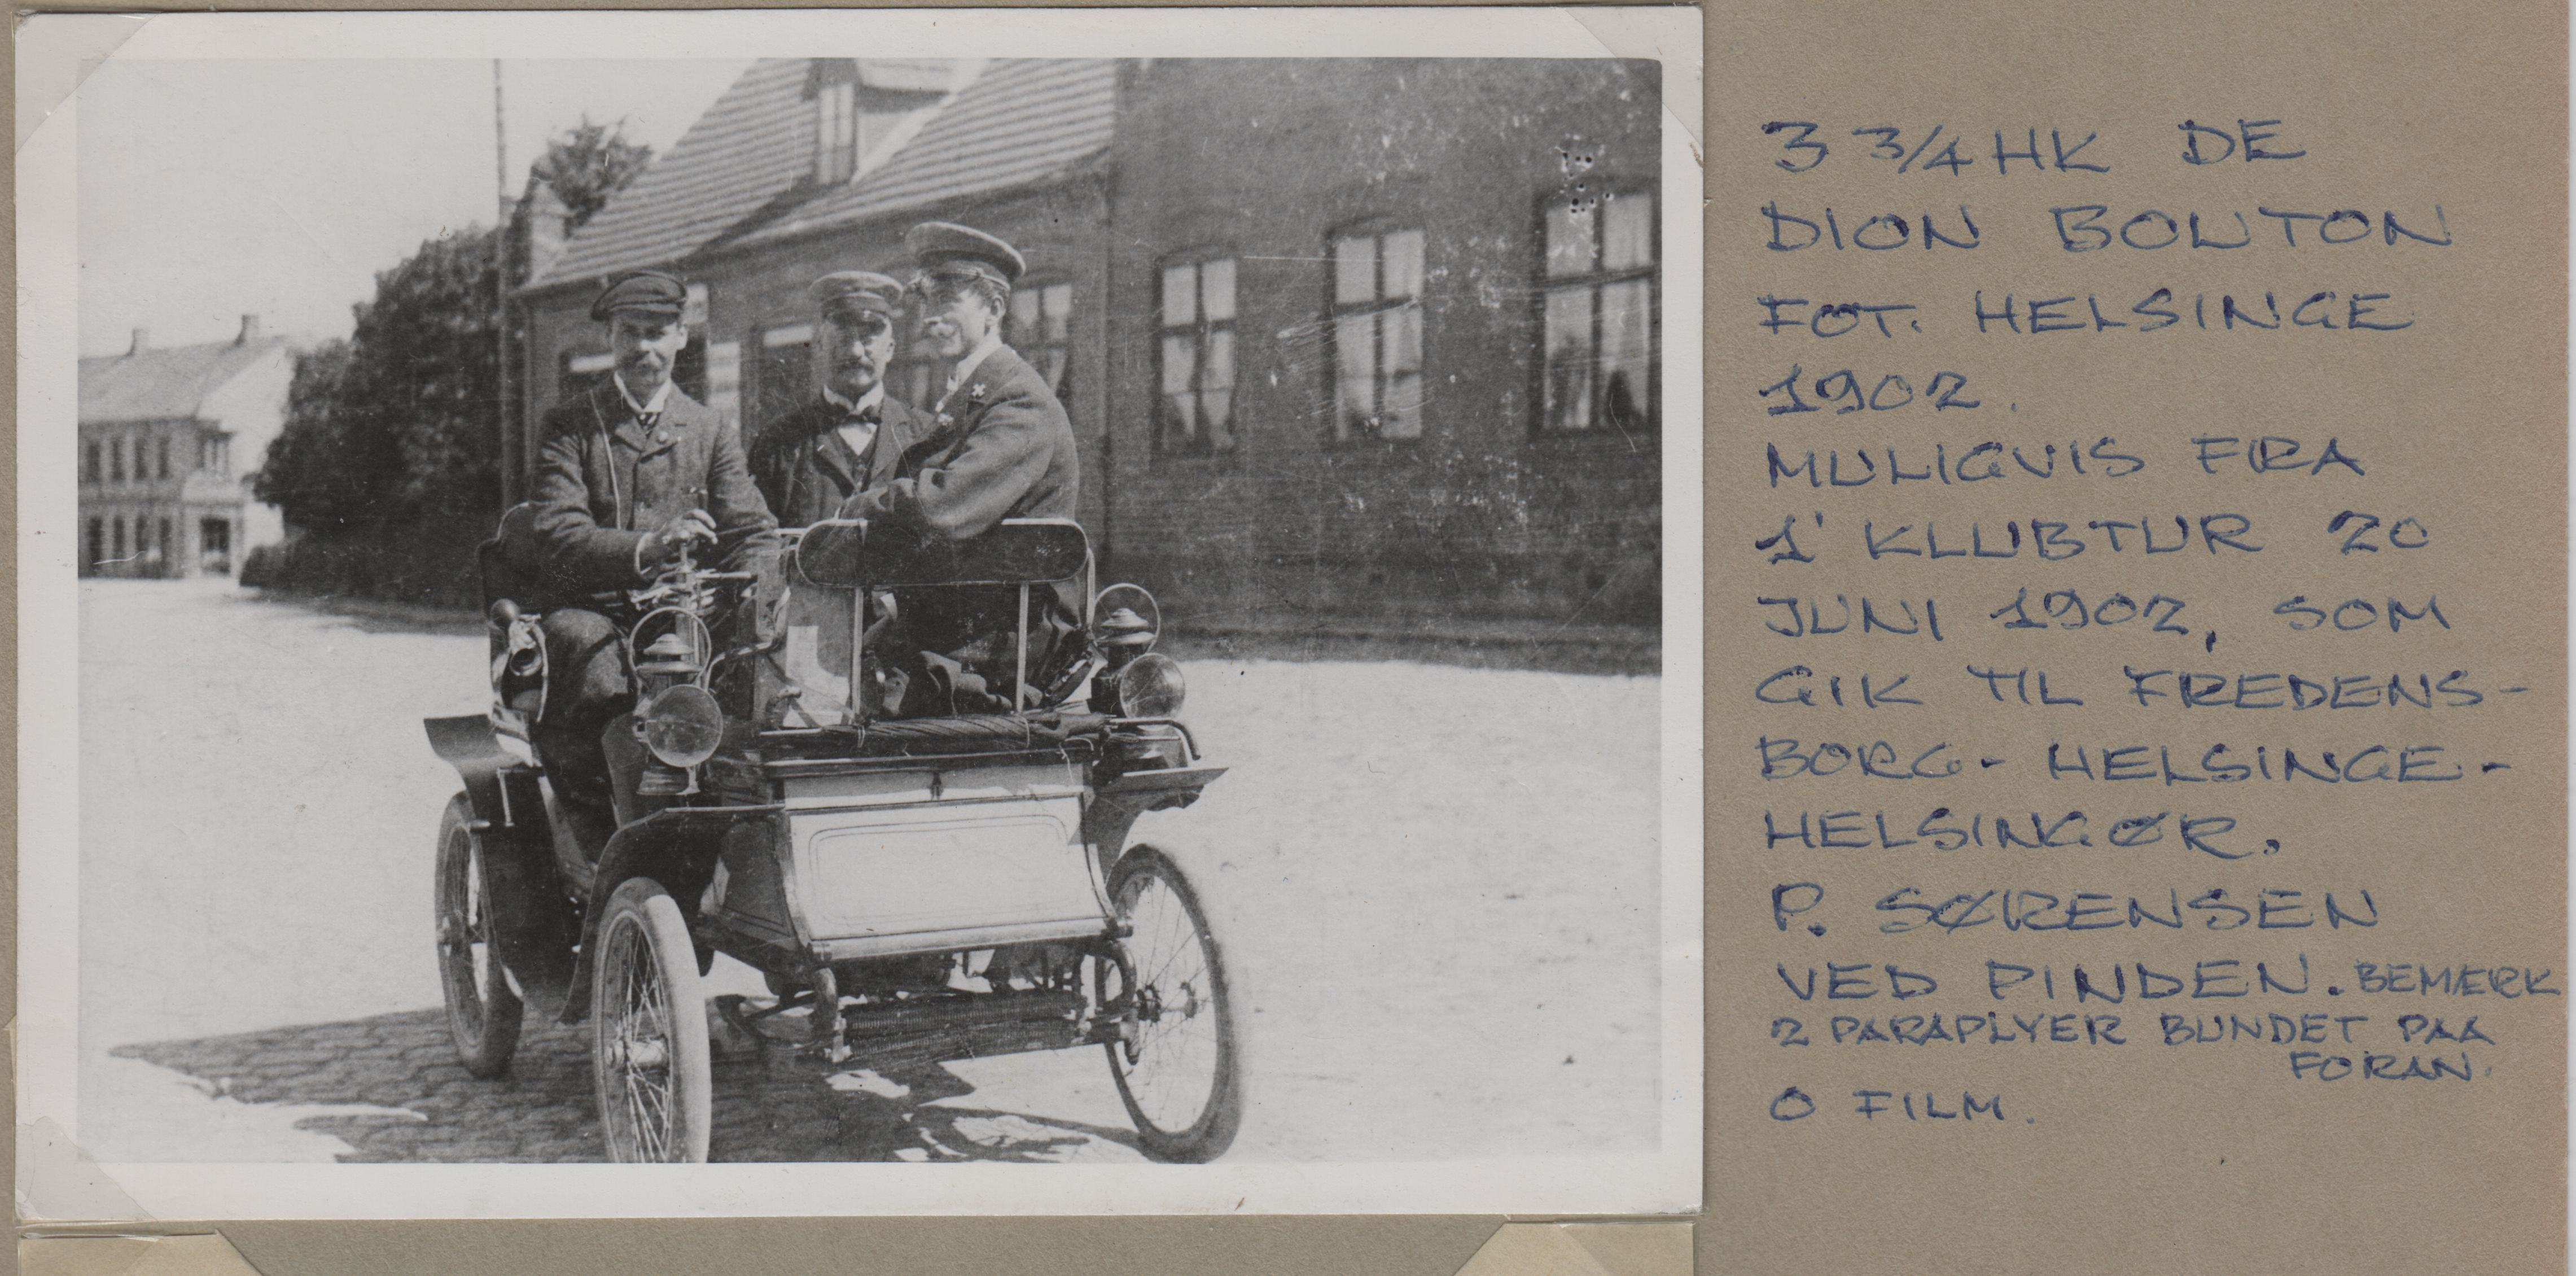 3 3/4 HK DE
DION BOUTON
FOT. HELSINGE
1902.
MULIGVIS FRA
1' KLUBTUR 20
JUNI 1902, SOM
GIK TIL FREDENS-
BORG - HELSINGE -
HELSINGØR.
P. SØRENSEN
VED PINDEN. BEMÆRK
2 PARAPLYER BUNDET PAA
FORAN.
0 FILM.